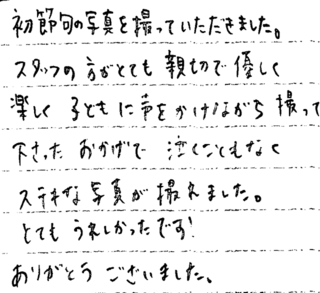 初節句の写真を撮っていただきました。
スタッフの方がとても親切で優しく
楽しく子どもに声をかけながら撮って
下さったおかげで泣くこともなく
ステキな写真が撮れました。
とてもうれしかったです!
ありがとうございました。